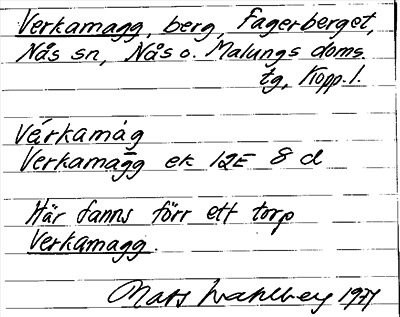 Verkamagg, berg, Fagerberget,
Nås sn, Nås o. Malungs doms.
tg, Kopp. l.
Vérkamàg
Verkamagg ek 12E 8 d
Här fanns förr ett torp
Verkamagg.
Mats Wahlberg 1971